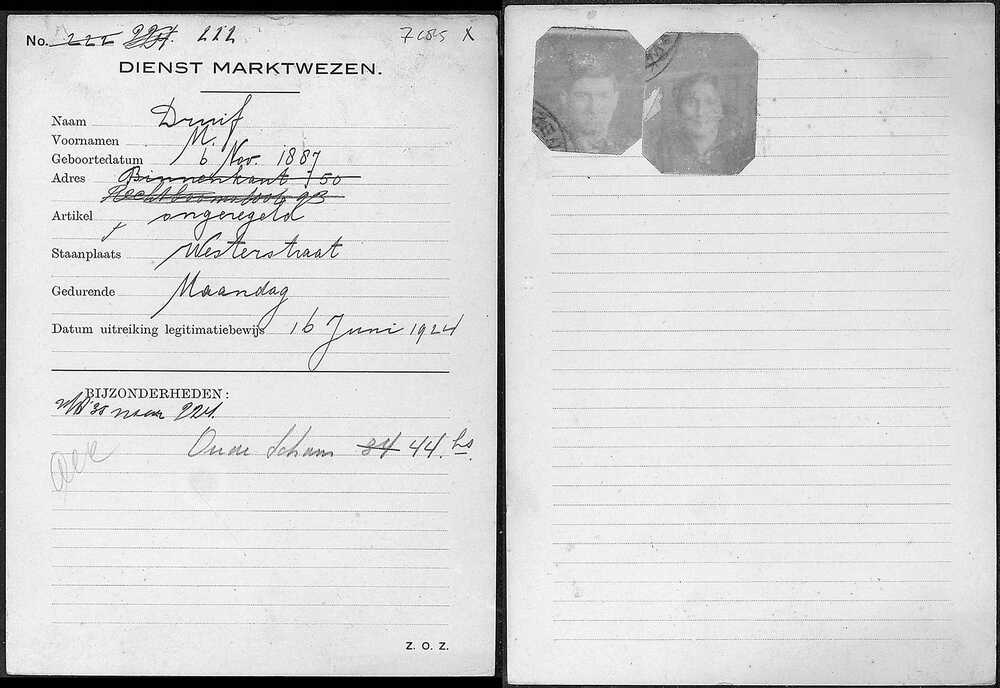 No. 222 224. 222
X
DIENST MARKTWEZEN.
Naam Druif
Voornamen M.
Geboortedatum 6 Nov. 1887
Adres Binnenkant 750
93
Artikel ongeregeld
Staanplaats Westerstraat
Gedurende Maandag
Datum uitreiking legitimatiebewijs 16 Juni 1924
BIJZONDERHEDEN:
'30 naar 224.
Oude Schans 34 44. hs.
Z. O. Z.